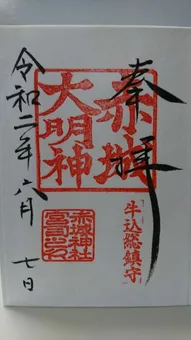 奉拝
赤城
大明神
牛込総鎮守
赤城神社
宮司之印
令和二年八月七日